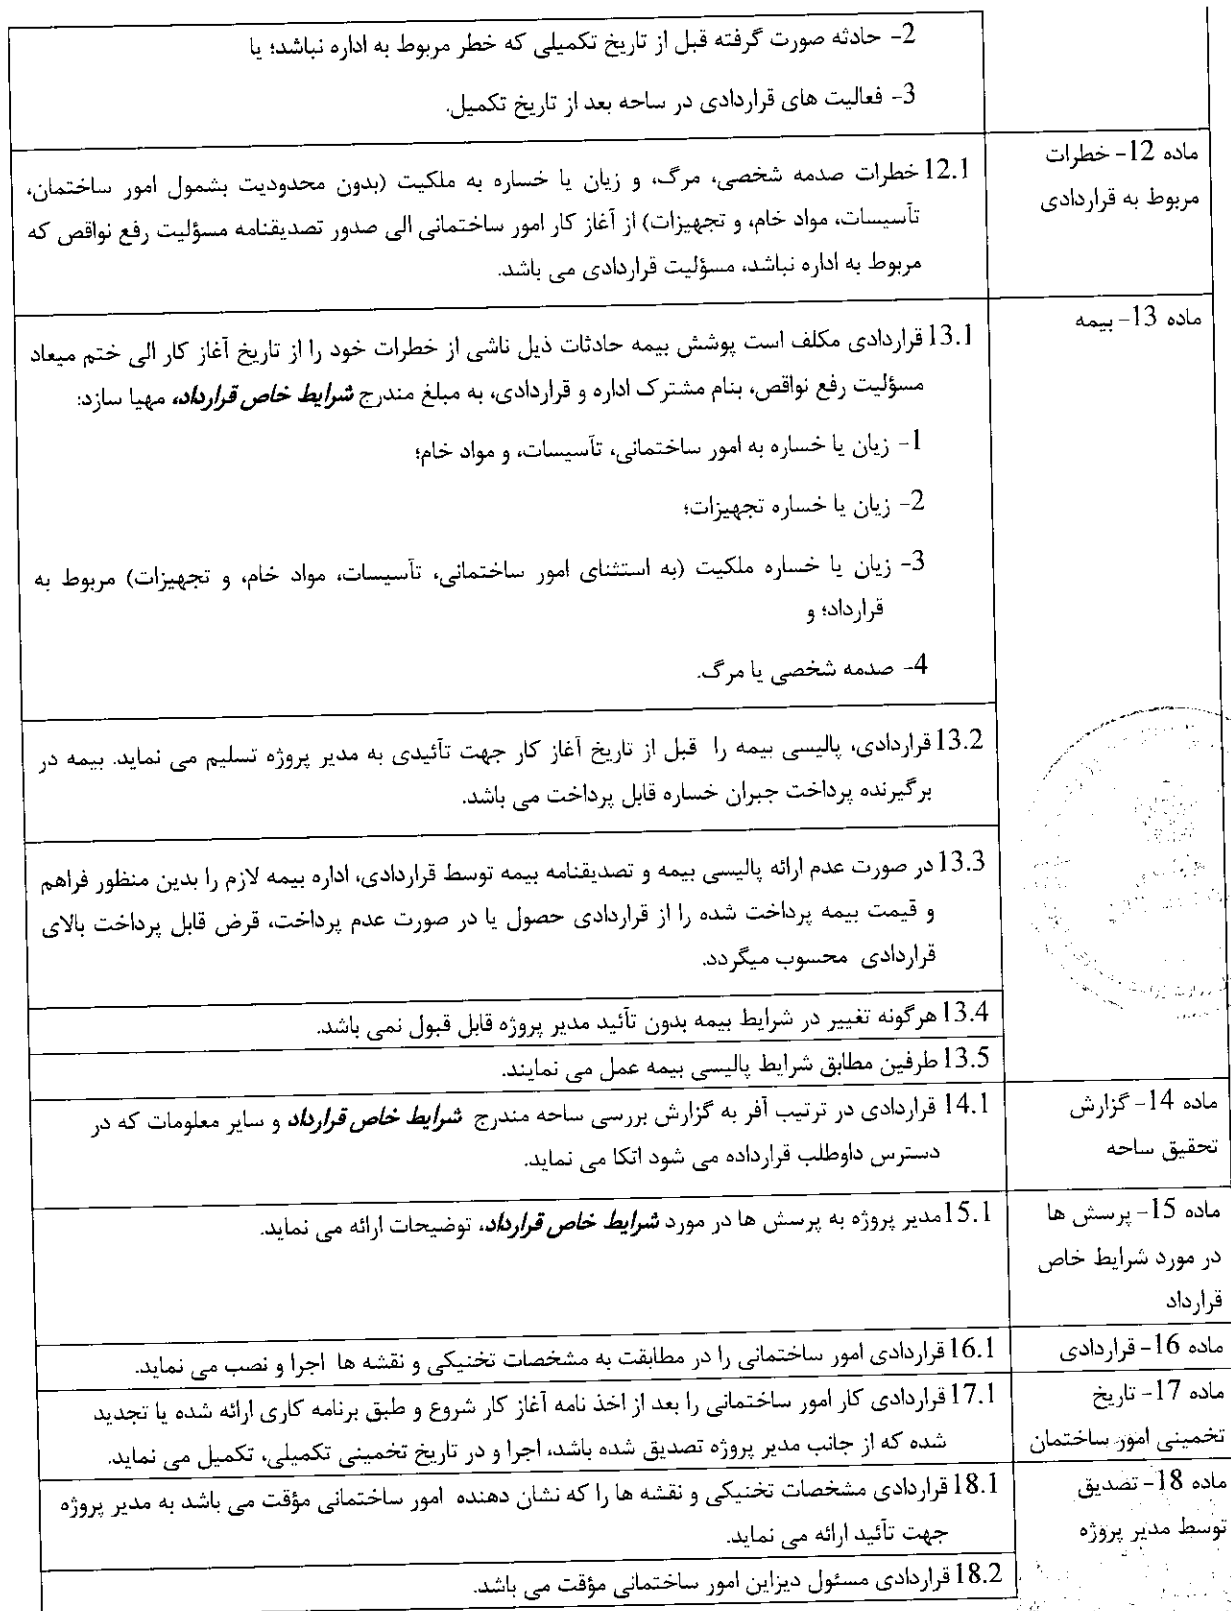 2- حادثه صورت گرفته قبل از تاریخ تکمیلی که خطر مربوط به اداره نباشد؛ یا
3- فعالیت های قراردادی در ساحه بعد از تاریخ تکمیل.
ماده 12- خطرات
مربوط به قراردادی
12.1 خطرات صدمه شخصی، مرگ، و زیان یا خساره به ملکیت (بدون محدودیت بشمول امور ساختمان،
تآسیسات، مواد خام، و تجهیزات) از آغاز کار امور ساختمانی الی صدور تصدیقنامه مسؤلیت رفع نواقص که
مربوط به اداره نباشد، مسؤلیت قراردادی می باشد.
ماده 13- بیمه
13.1 قراردادی مکلف است پوشش بیمه حادثات ذیل ناشی از خطرات خود را از تاریخ آغاز کار الی ختم میعاد
مسؤلیت رفع نواقص، بنام مشترک اداره و قراردادی، به مبلغ مندرج شرایط خاص قرارداد، مهیا سازد:
1- زیان یا خساره به امور ساختمانی، تآسیسات، و مواد خام؛
2- زیان یا خساره تجهیزات؛
3- زیان یا خساره ملکیت (به استثنای امور ساختمانی، تآسیسات، مواد خام، و تجهیزات) مربوط به
قرارداد؛ و
4- صدمه شخصی یا مرگ.
13.2 قراردادی، پالیسی بیمه را قبل از تاریخ آغاز کار جهت تآئیدی به مدیر پروژه تسلیم می نماید. بیمه در
برگیرنده پرداخت جبران خساره قابل پرداخت می باشد.
13.3 در صورت عدم ارائه پالیسی بیمه و تصدیقنامه بیمه توسط قراردادی، اداره بیمه لازم را بدین منظور فراهم
و قیمت بیمه پرداخت شده را از قراردادی حصول یا در صورت عدم پرداخت، قرض قابل پرداخت بالای
قراردادی محسوب میگردد.
13.4 هرگونه تغییر در شرایط بیمه بدون تآئید مدیر پروژه قابل قبول نمی باشد.
13.5 طرفین مطابق شرایط پالیسی بیمه عمل می نمایند.
ماده 14- گزارش
تحقیق ساحه
14.1 قراردادی در ترتیب آفر به گزارش بررسی ساحه مندرج شرایط خاص قرارداد و سایر معلومات که در
دسترس داوطلب قرارداده می شود اتکا می نماید.
ماده 15- پرسش ها
در مورد شرایط خاص
قرارداد
15.1 مدیر پروژه به پرسش ها در مورد شرایط خاص قرارداد، توضیحات ارائه می نماید.
ماده 16- قراردادی
16.1 قراردادی امور ساختمانی را در مطابقت به مشخصات تخنیکی و نقشه ها اجرا و نصب می نماید.
ماده 17- تاریخ
تخمینی امور ساختمان
17.1 قراردادی کار امور ساختمانی را بعد از اخذ نامه آغاز کار شروع و طبق برنامه کاری ارائه شده یا تجدید
شده که از جانب مدیر پروژه تصدیق شده باشد، اجرا و در تاریخ تخمینی تکمیلی، تکمیل می نماید.
ماده 18- تصدیق
توسط مدیر پروژه
18.1 قراردادی مشخصات تخنیکی و نقشه ها را که نشان دهنده امور ساختمانی مؤقت می باشد به مدیر پروژه
جهت تآئید ارائه می نماید.
18.2 قراردادی مسئول دیزاین امور ساختمانی مؤقت می باشد.